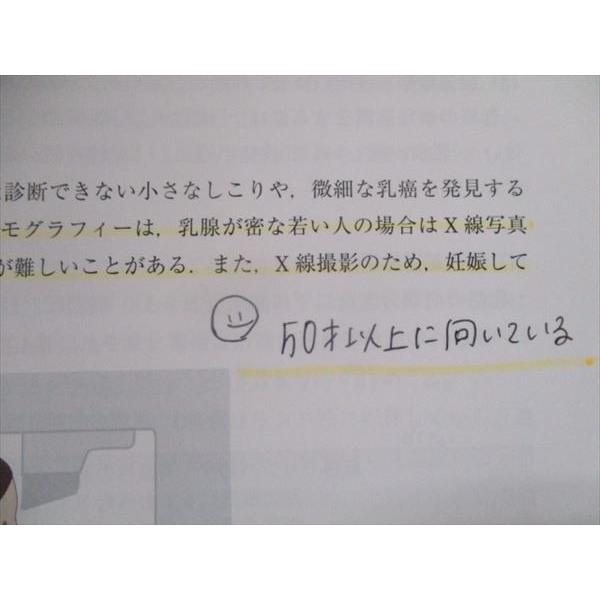 診断できない小さなしこりや，微細な乳癌を発見する
モグラフィーは，乳腺が密な若い人の場合はX線写真
が難しいことがある．また，X線撮影のため，妊娠して
50才以上に向いている